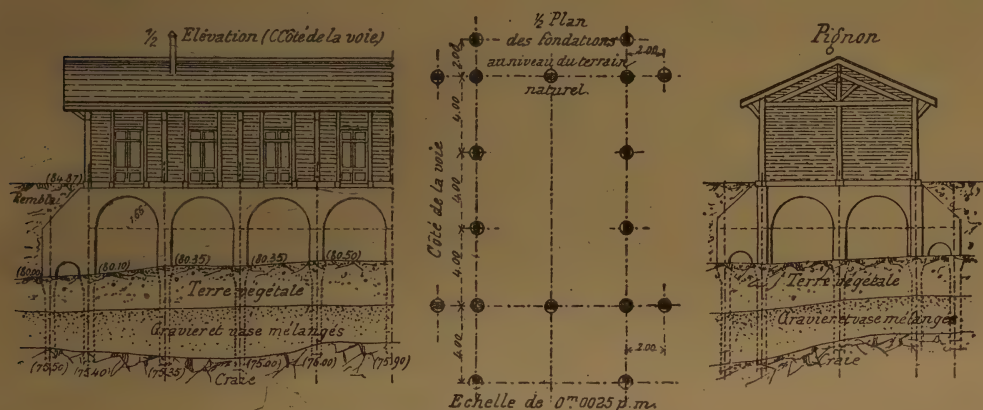 ½ Elévation (CCôté de la voie)
(84.87)
Remblai
1.65
(80.00)
(80.10)
(80.35)
(80.35)
(80.50)
Terre végétale
Gravier et vase mélangés
(75.50)
(75.40)
(75.35)
(75.00)
(76.00)
(75.90)
Craie
½ Plan
des fondations
au niveau du terrain
naturel.
2.00
2.00
4.00
4.00
4.00
4.00
2.00
Côté de la voie
Echelle de 0m,0025 p.m.
Pignon
Terre végétale
Gravier et vase mélangés
Craie